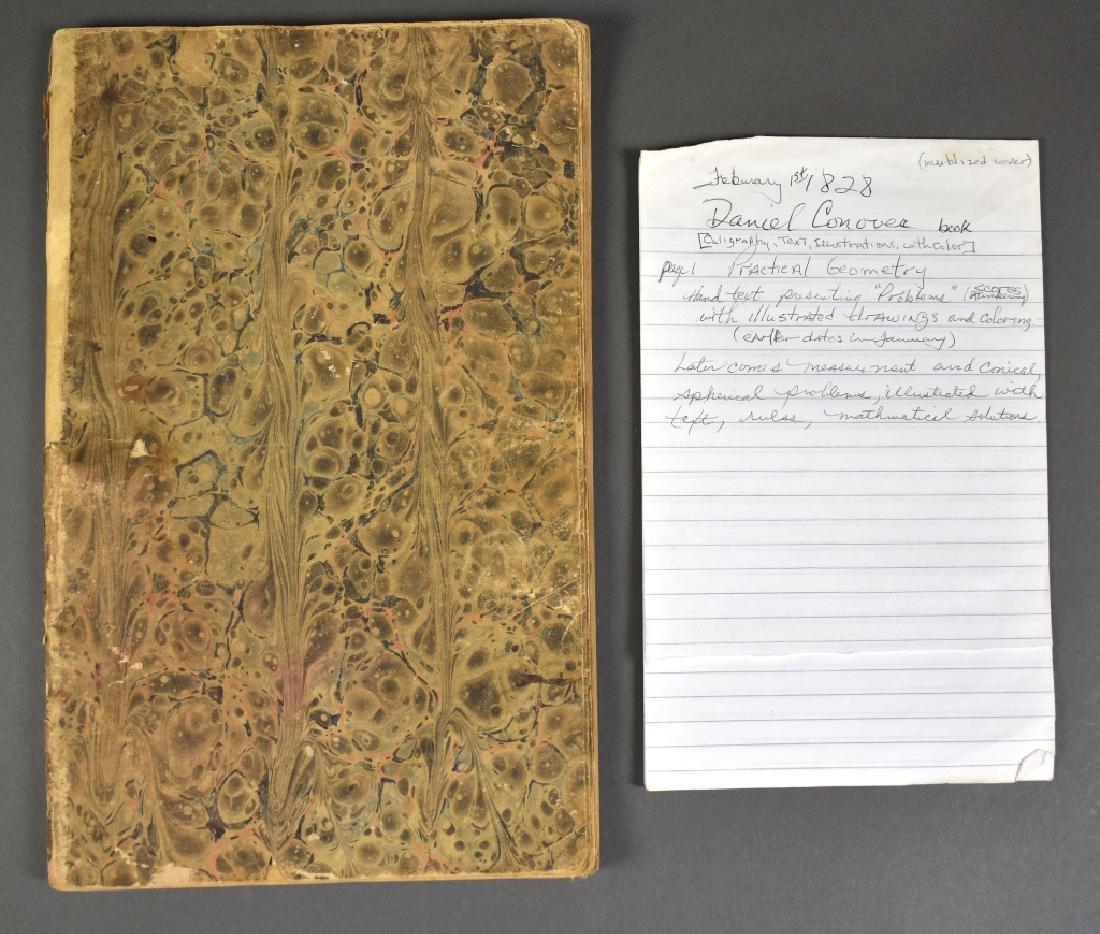 (marblized cover)
Febuary 1st 1828
Daniel Conover book
[Caligraphy, Text, Illustrations, with color]
page 1 Practical Geometry
Hand text presenting "Problems" (scores numbering)
with illustrated drawings and coloring
(earlier dates in January)
Later comes measurement and conical,
spherical problems, illustrated with
text, rules, mathmatical solutions.